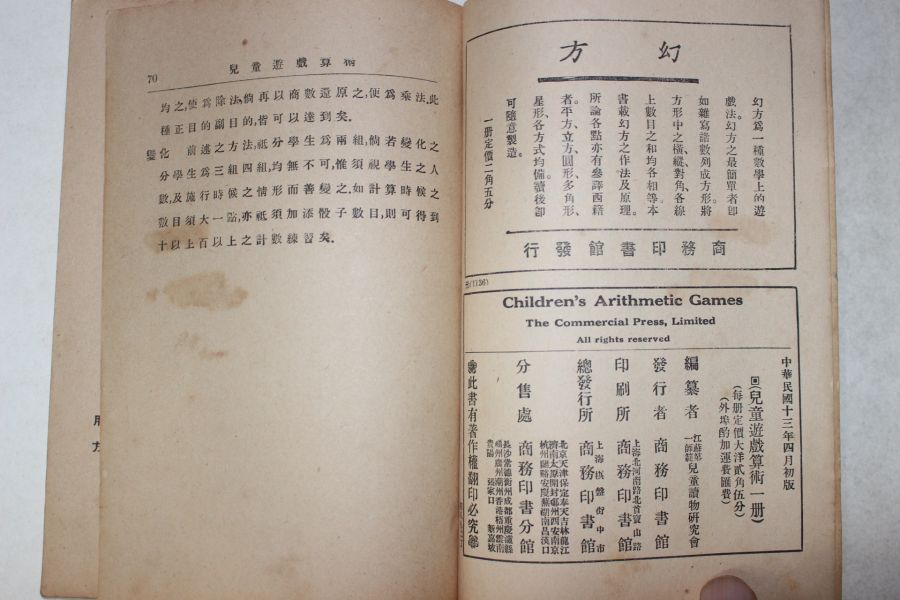 70
兒童遊戲算術
均之,使爲除法,倘再以商數還原之,便爲乘法,此
種正目的副目的,皆可以達到矣.
變化 前述之方法,祇學生爲兩組,倘若變化之
分學生爲三組四組,均無不可,惟須視學生之人
數,及施行時候之情形而善變之,如計算時候之
數目須大一點,亦祇須加添骰子數目,則可得到
十以上百以上之計數練習矣.
幻方
幻方爲一種數學上的遊
戲法.幻方之最簡單者,卽
如雜寫諸數,列成方形,將
方形中之橫縱對角各線
上數目之和均各相等.本
書載幻方之作法及原理.
所論各點,亦有參譯西籍
者.平方,立方,圓形,多角形,
星形,各方式均備.讀後卽
可隨意製造.
一册定價二角五分
商務印書館發行
元(1736)
Children's Arithmetic Games
The Commercial Press, Limited
All rights reserved
中華民國十三年四月初版
(兒童遊戲算術一册)
(每册定價大洋貳角伍分)
(外埠酌加運費匯費)
編纂者 江蘇第一師範兒童讀物研究會
發行者 商務印書館
印刷所 上海北河南路北首寶山路 商務印書館
總發行所 上海棋盤街中市 商務印書館
分售處 商務印書分館
北京天津保定奉天吉林龍江
濟南太原開封鄭州西安南京
杭州蘭谿安慶蕪湖南昌漢口
長沙常德衡州成都重慶瀘縣
福州廣州潮州香港梧州雲南
貴陽 張家口 新嘉坡
此書有著作權翻印必究